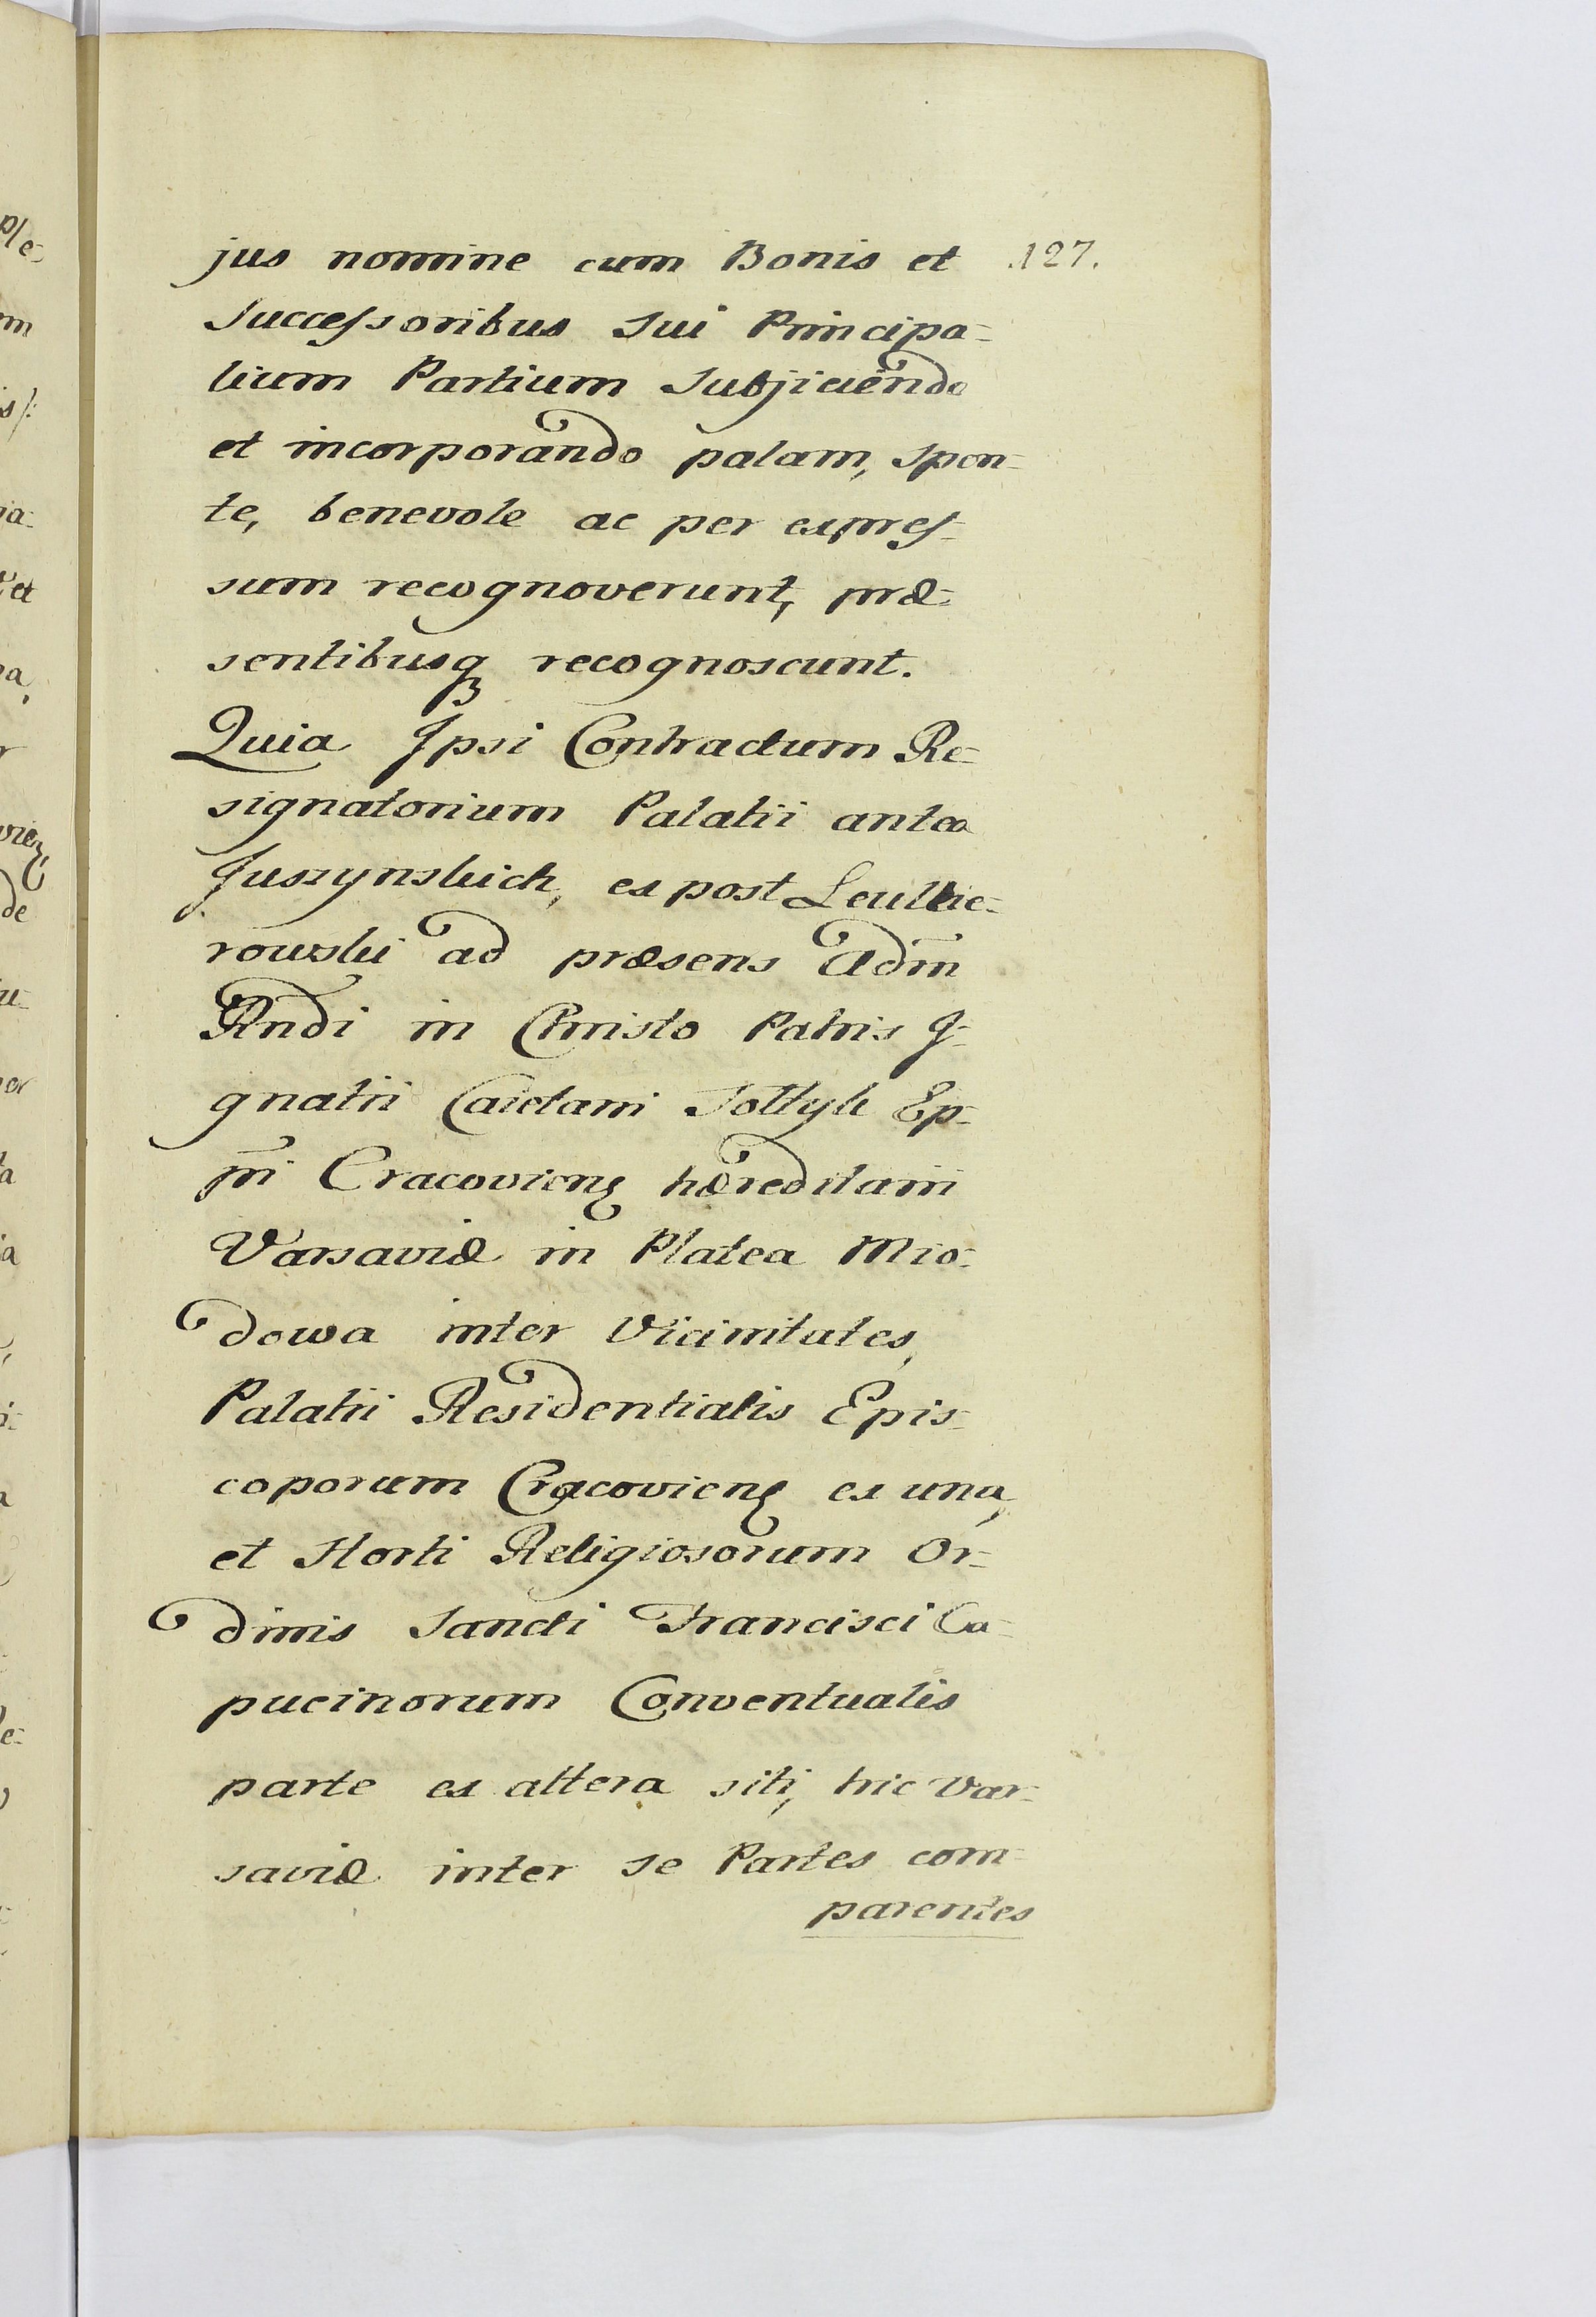 jus nomine cum Bonis et 127.
Successoribus Sui Principa-
lium Partium Subjiciendo
et incorporando palam, spon-
te, benevole ac per expres-
sum recognoverunt, præ-
sentibusq recognoscunt.
Quia Ipsi Contractum Re-
signatorium Palatii antea
Juszynskich, ex post
rowski ad præsens Adm̃
Rndi in Christo Patris I-
gnatii Caietani Sołtyk Ep-
pi Cracovien hæreditarii
Varsaviæ in Platea Mio-
dowa inter Vicinitates,
Palatii Residentialis Epis-
coporum Cracovien ex una,
et Horti Religiosorum Or-
dinis Sancti Francisci Ca-
pucinorum Conventualis
parte ex altera siti, hic Var-
saviæ inter se Partes com-
parentes